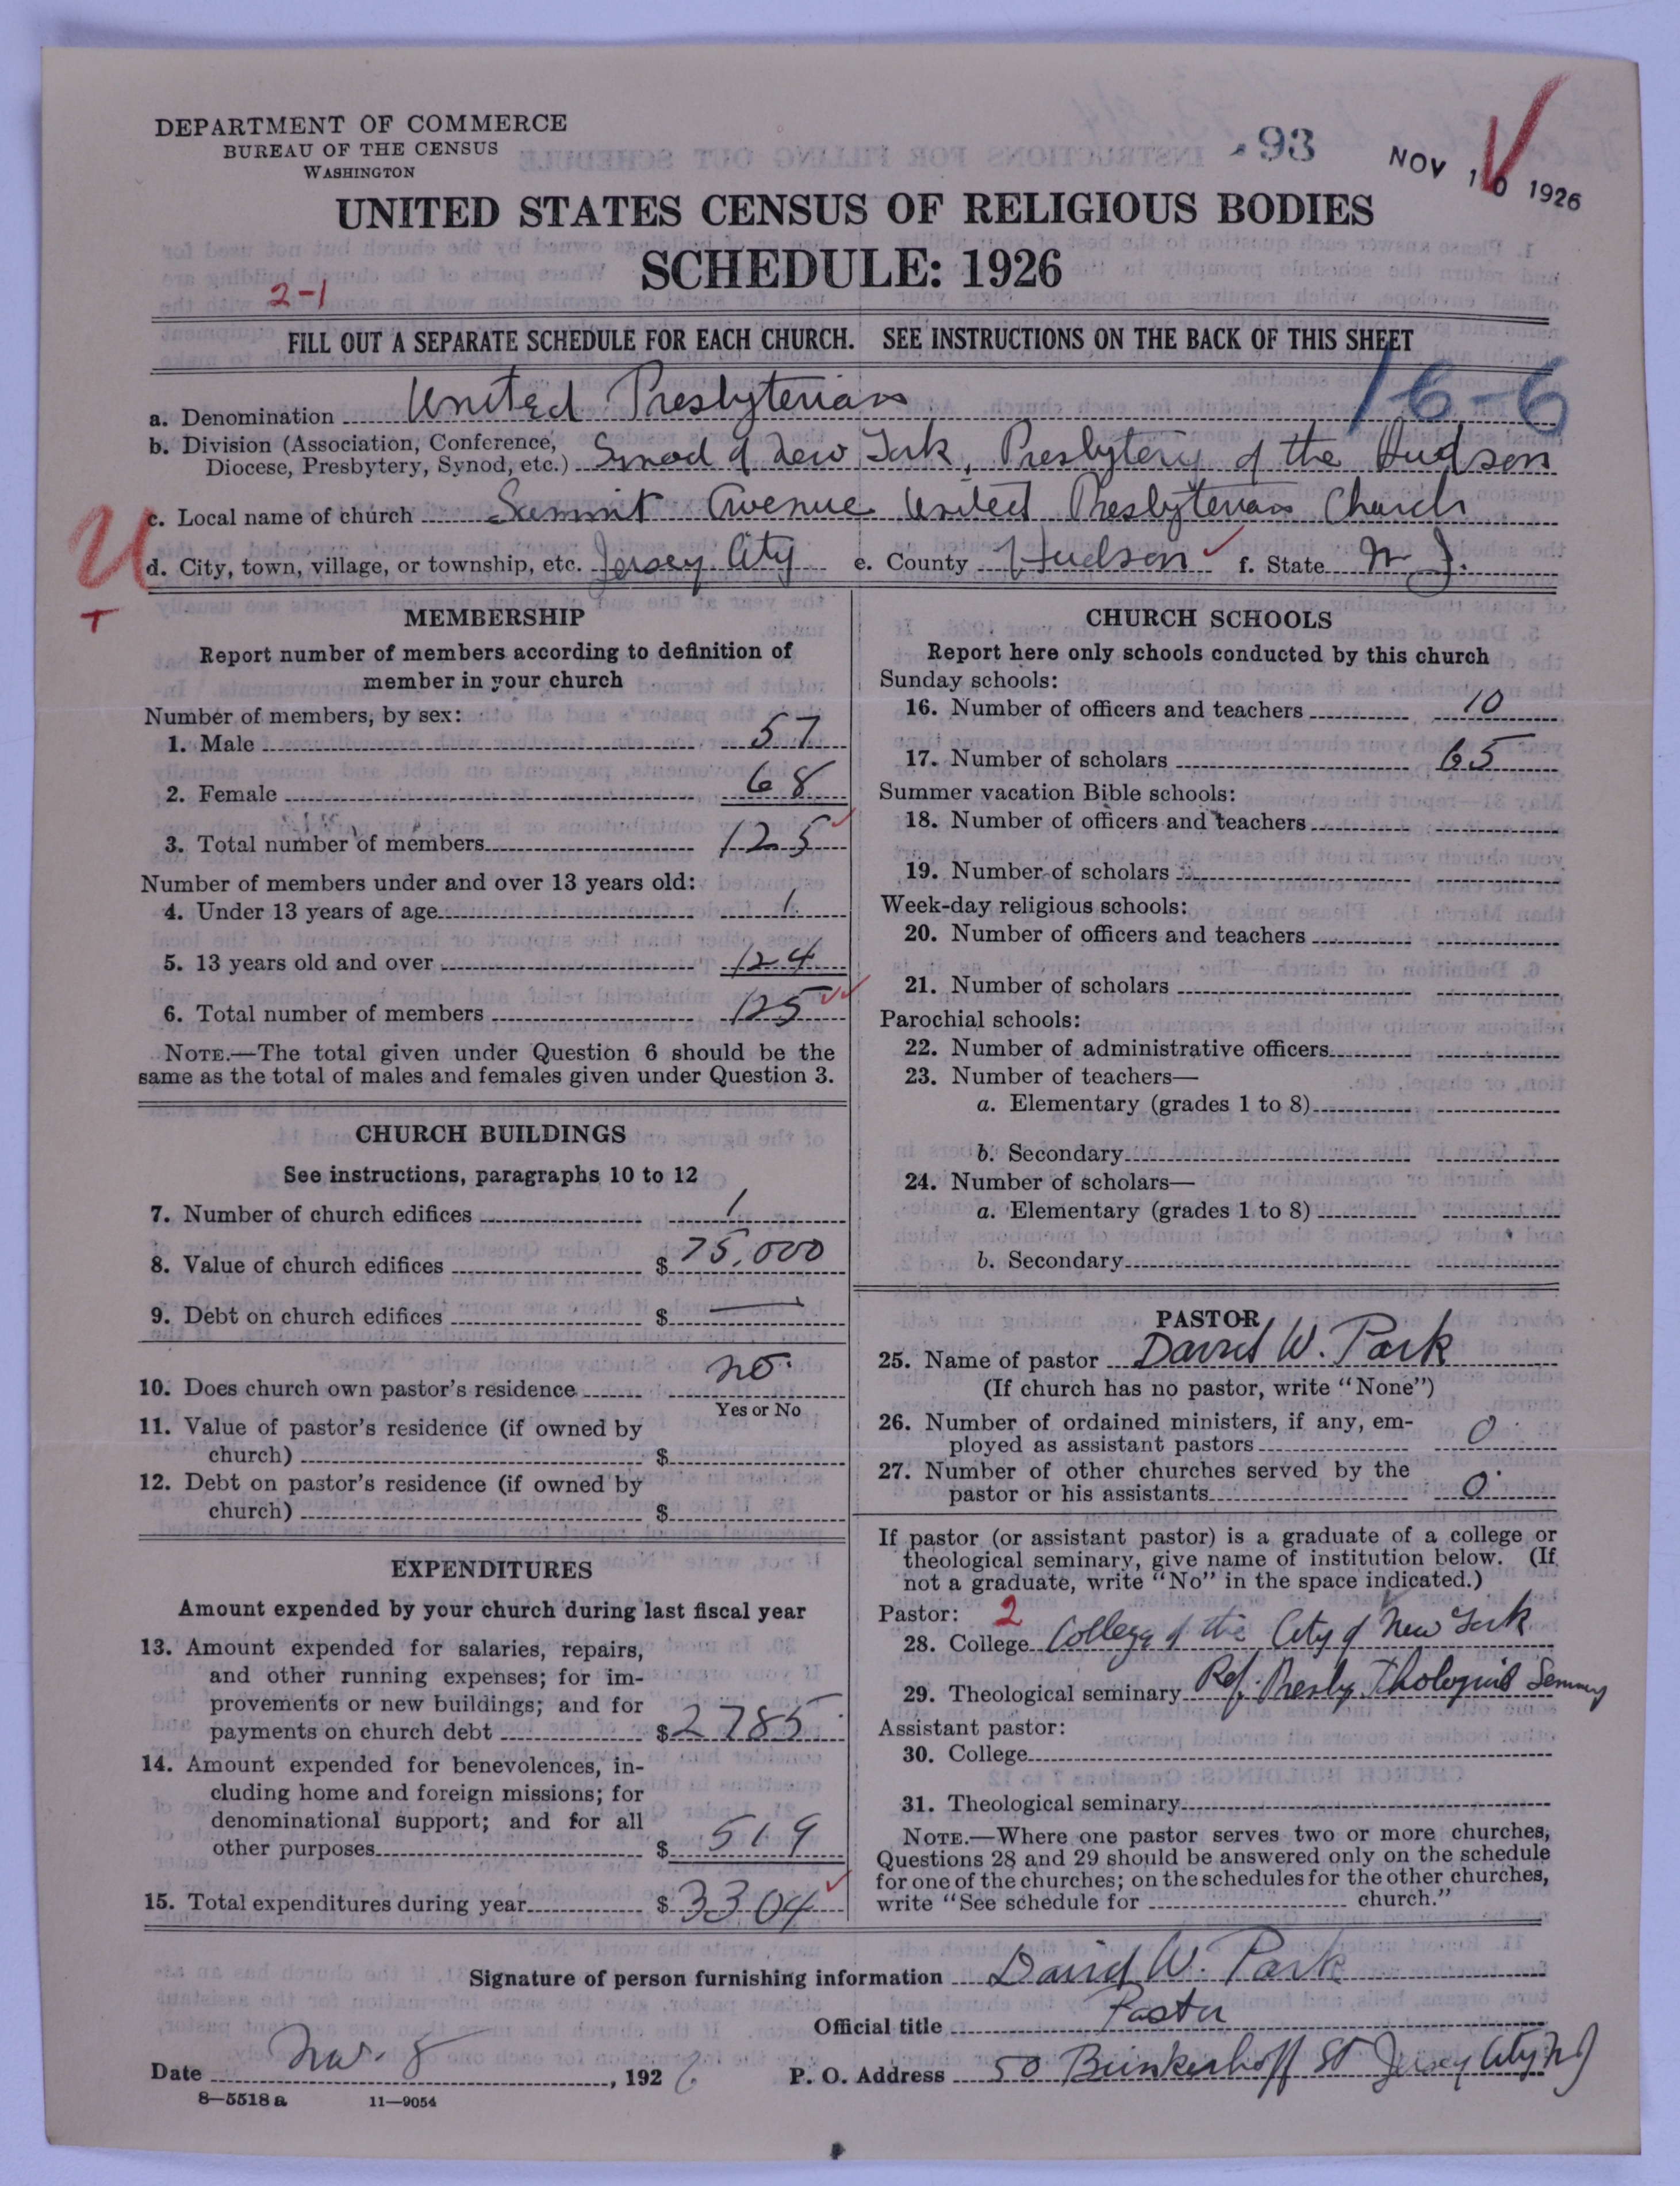 DEPARTMENT OF COMMERCE
BUREAU OF THE CENSUS
WASHINGTON
93
NOV 10 1926
UNITED STATES CENSUS OF RELIGIOUS BODIES
SCHEDULE: 1926
2-1
FILL OUT A SEPARATE SCHEDULE FOR EACH CHURCH. SEE INSTRUCTIONS ON THE BACK OF THIS SHEET
16-6
a. Denomination United Presbyterian
b. Division (Association, Conference,
Diocese, Presbytery, Synod, etc.) Synod of New York, Presbytery of the Hudson
c. Local name of church Summit Avenue United Presbyterian Church
U
d. City, town, village, or township, etc. Jersey City e. County Hudson f. State N. J.
T
MEMBERSHIP
Report number of members according to definition of
member in your church
Number of members, by sex:
1. Male 57
2. Female 68
3. Total number of members 125
Number of members under and over 13 years old:
4. Under 13 years of age 1
5. 13 years old and over 124
6. Total number of members 125
NOTE.—The total given under Question 6 should be the
same as the total of males and females given under Question 3.
CHURCH BUILDINGS
See instructions, paragraphs 10 to 12
7. Number of church edifices 1
8. Value of church edifices $ 75,000
9. Debt on church edifices $ —
10. Does church own pastor's residence no
Yes or No
11. Value of pastor's residence (if owned by
church) $
12. Debt on pastor's residence (if owned by
church) $
EXPENDITURES
Amount expended by your church during last fiscal year
13. Amount expended for salaries, repairs,
and other running expenses; for im-
provements or new buildings; and for
payments on church debt $ 2785
14. Amount expended for benevolences, in-
cluding home and foreign missions; for
denominational support; and for all
other purposes $ 519
15. Total expenditures during year $ 3304
CHURCH SCHOOLS
Report here only schools conducted by this church
Sunday schools:
16. Number of officers and teachers 10
17. Number of scholars 65
Summer vacation Bible schools:
18. Number of officers and teachers
19. Number of scholars
Week-day religious schools:
20. Number of officers and teachers
21. Number of scholars
Parochial schools:
22. Number of administrative officers
23. Number of teachers—
a. Elementary (grades 1 to 8)
b. Secondary
24. Number of scholars—
a. Elementary (grades 1 to 8)
b. Secondary
PASTOR
25. Name of pastor David W. Park
(If church has no pastor, write "None")
26. Number of ordained ministers, if any, em-
ployed as assistant pastors 0
27. Number of other churches served by the
pastor or his assistants 0
If pastor (or assistant pastor) is a graduate of a college or
theological seminary, give name of institution below. (If
not a graduate, write "No" in the space indicated.)
Pastor: 2
28. College College of the City of New York
29. Theological seminary Ref. Presby Theological Seminary
Assistant pastor:
30. College
31. Theological seminary
NOTE.—Where one pastor serves two or more churches,
Questions 28 and 29 should be answered only on the schedule
for one of the churches; on the schedules for the other churches,
write "See schedule for church."
Signature of person furnishing information David W. Park
Official title Pastor
Date Nov. 8, 1926 P. O. Address 50 Brinkerhoff St Jersey City NJ
8—5518 a 11—9054